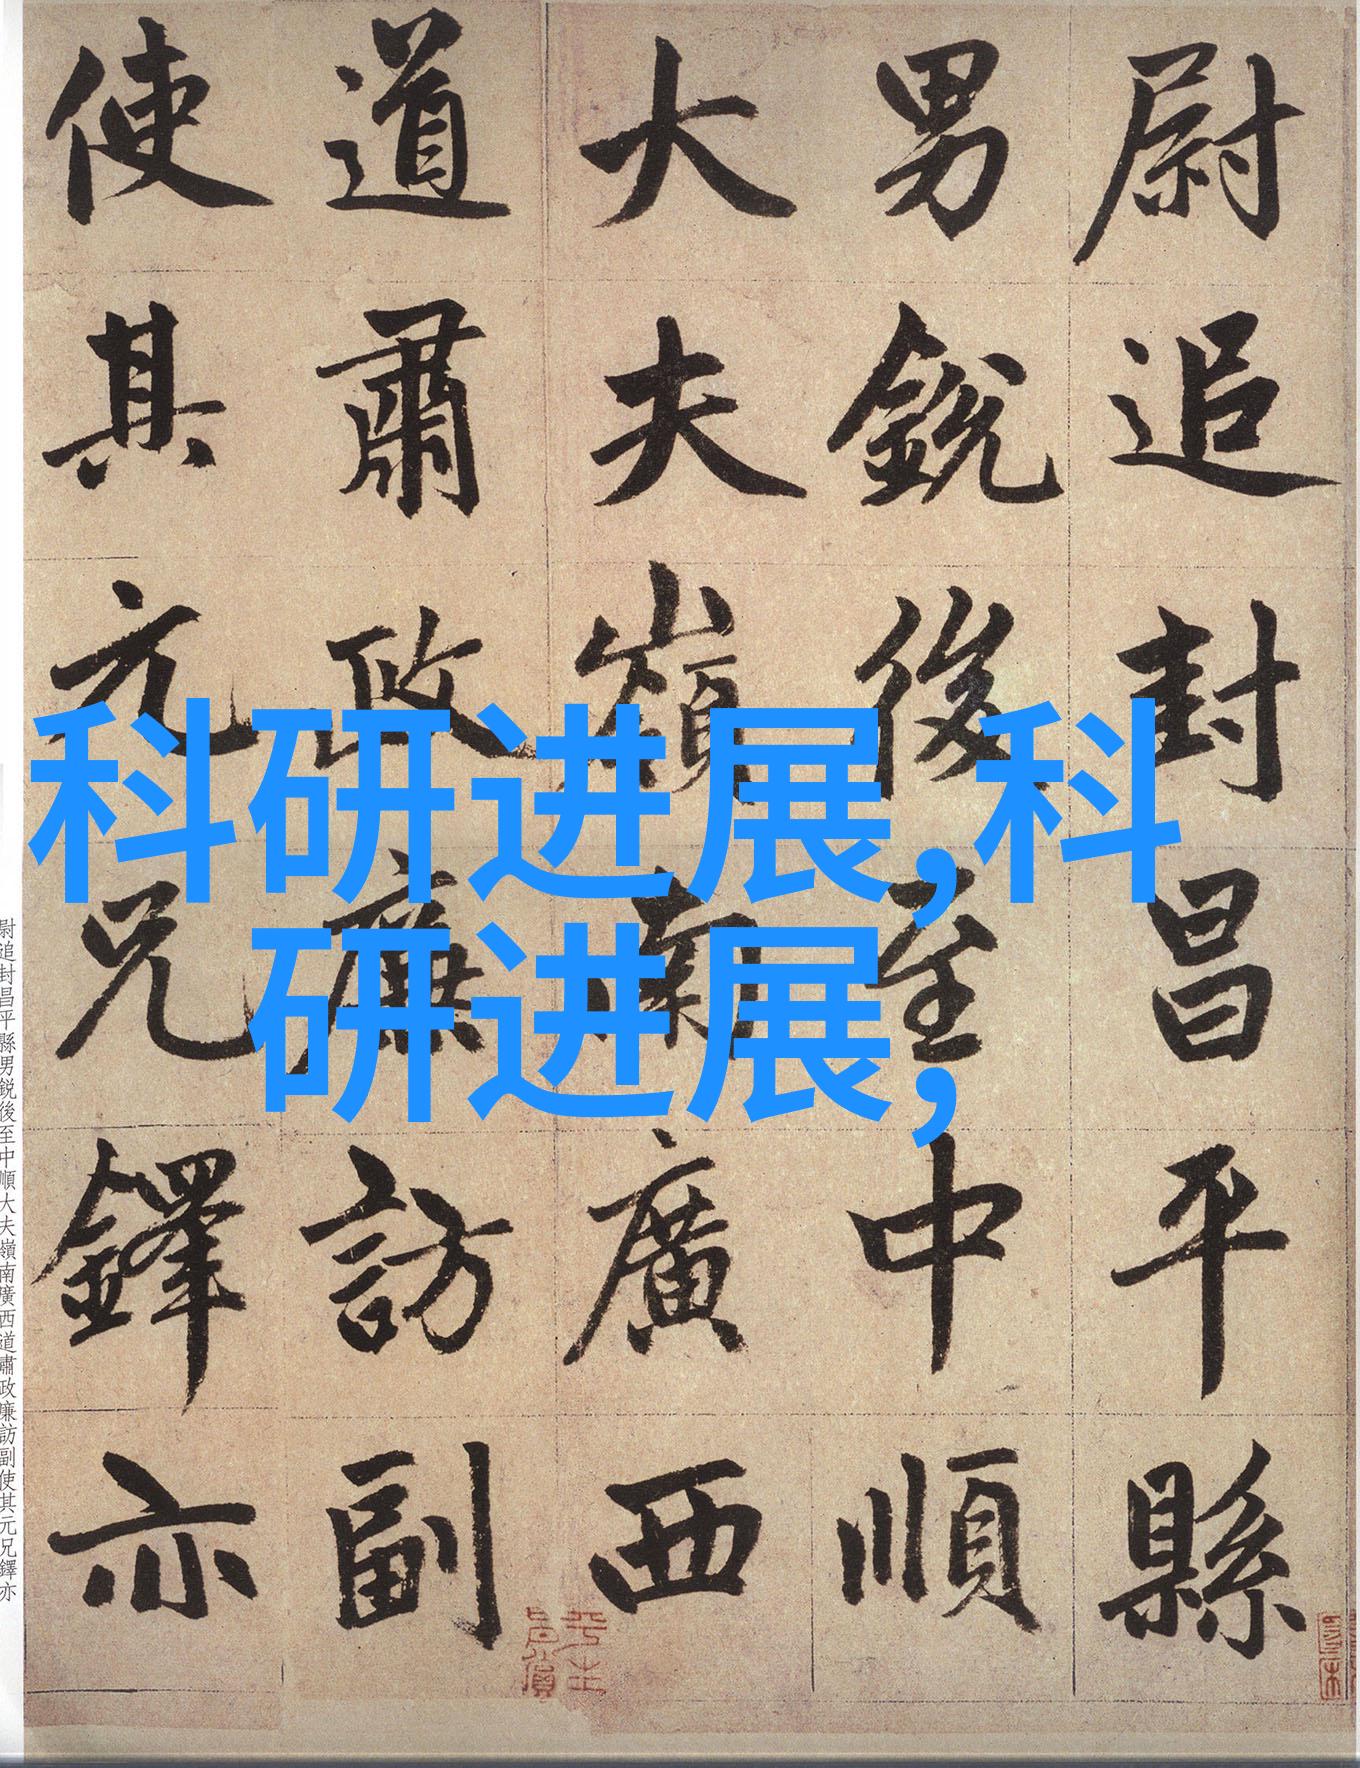 尉追封昌平縣
男銳後至中順
大夫嶺南廣西
道肅政廉訪副
使其元兄鐸亦
科研进展,科
研进展,
尉追封昌平縣男銳後至中順大夫嶺南廣西道肅政廉訪副使其元兄鐸亦